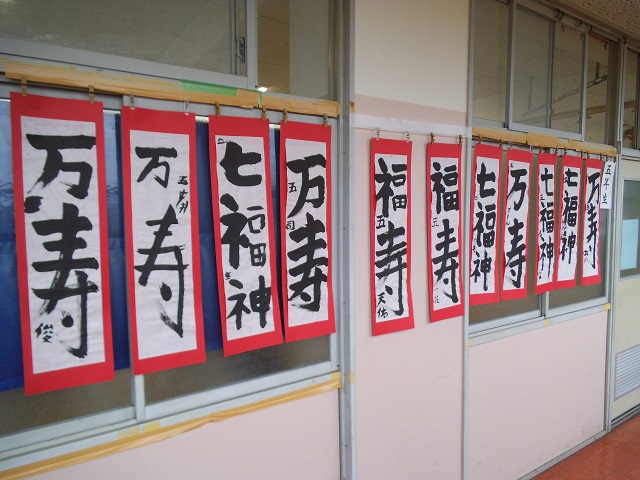 万寿
俊
万寿
七福神
万寿
五
福寿
五
天佑
福寿
七福神
万寿
七福神
七福神
万寿
五年生